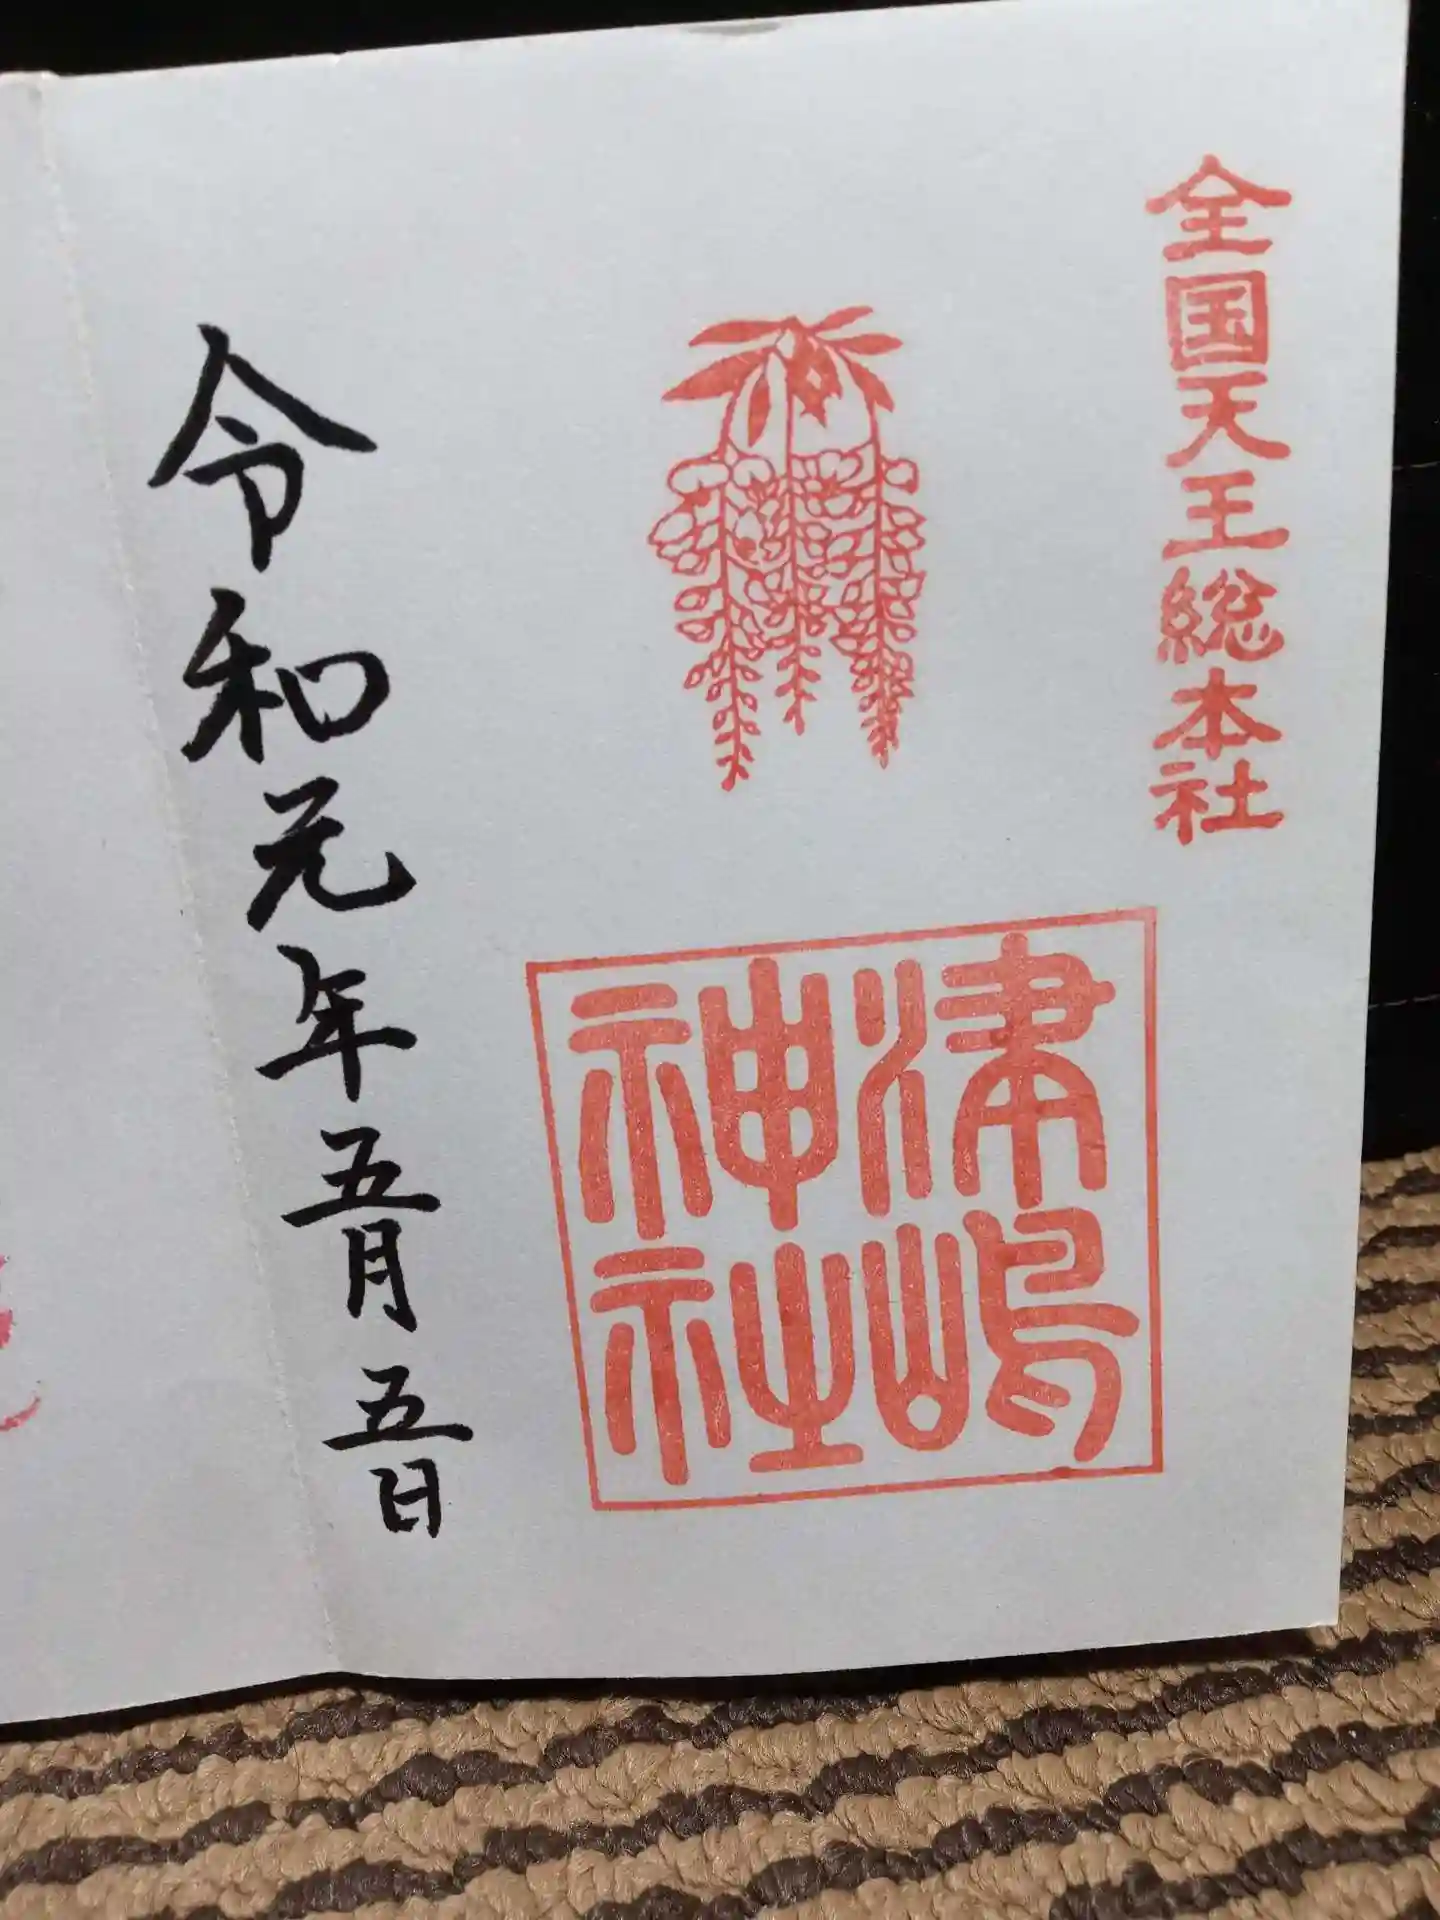 全国天王総本社
津嶋
神社
令和元年五月五日